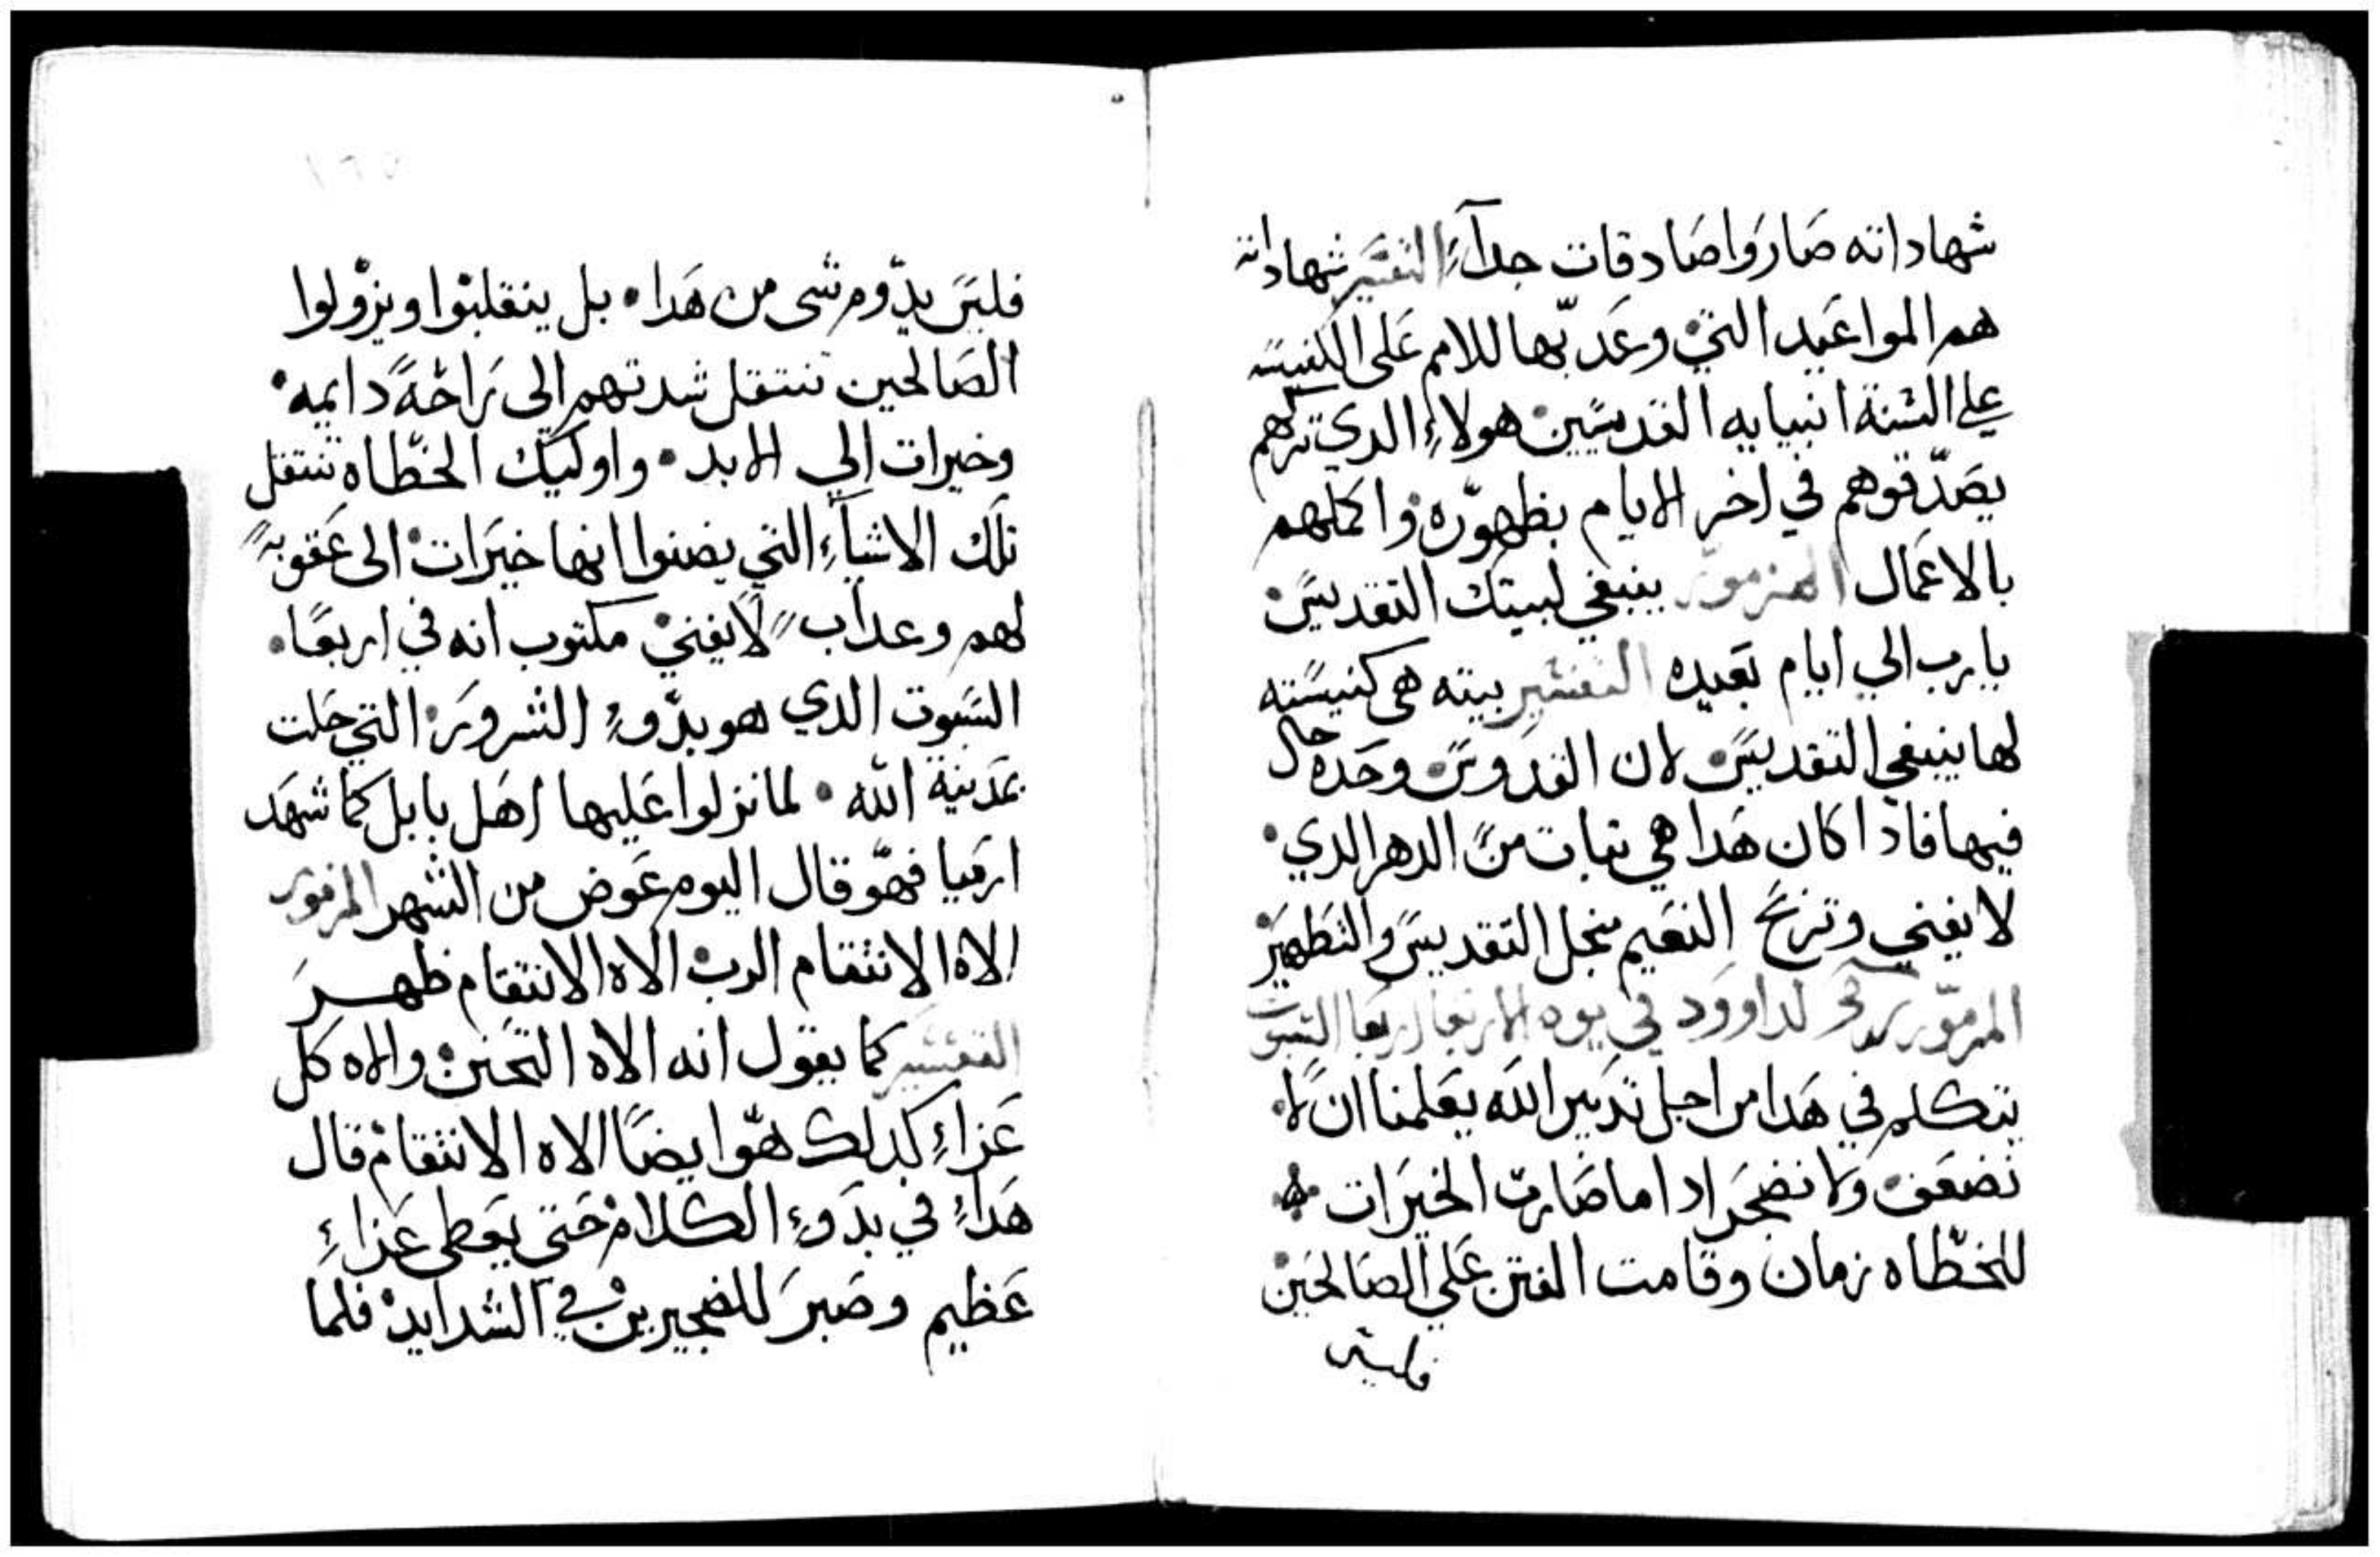 شهاداته صاروا صادقات جدآءً التفسير شهاداته
هم المواعيد التي وعد بها للامم على الكنيسه
علي السنة انبيايه القديسين هولاءِ الدي تركهم
يصدّقوهم في اخر الايام بظهوّره واكملهم
بالاعمال المزمور ينبغي لبيتك التقديس
يارب الي ايام بعيده التفسير بيته هى كنيسته
لها ينبغي التقديس لان القدوس وحده حال
فيها فاذا كان هدا هي تبات من الدهر الدي
لا يفني وترت النعيم بنجل التقديس والتطهير
المزمّور لداوود في يوم الاربعا اربعا السبوت
يتكلم في هدا من اجل تدبير الله يعلمنا ان لا
نضعف ولا نضجر ادا ما صارت الخيرات
للخطّاه زمان وقامت الفتن علي الصالحين
فليس
فليس يدّوم شى من هدا بل ينقلبوا ويزولوا
الصالحين تنتقل شدتهم الى راحةً دايمه
وخيرات الي الابد واوليك الخطّاه تنتقل
تلك الاشيآءِ التي يضنوا انها خيرات الى عقوبهً
لهم وعداب لا يفني مكتوب انه في اربعا
السبوت الدي هو بدّوءِ الشرور التي حلت
بمدينة الله لما نزلوا عليها اهل بابل كما شهد
ارميا فهّو قال اليوم عوض من الشهر المزمور
الاه الانتقام الرب الاه الانتقام ظهر
التفسير كما يقول انه الاه التحنن والاه كل
عزاءِ كدلك هّو ايضًا الاه الانتقام قال
هداءِ في بدوءِ الكلام حتى يعطى عزاءِ
عظيم وصبر للضجيرين في الشدايد فلما